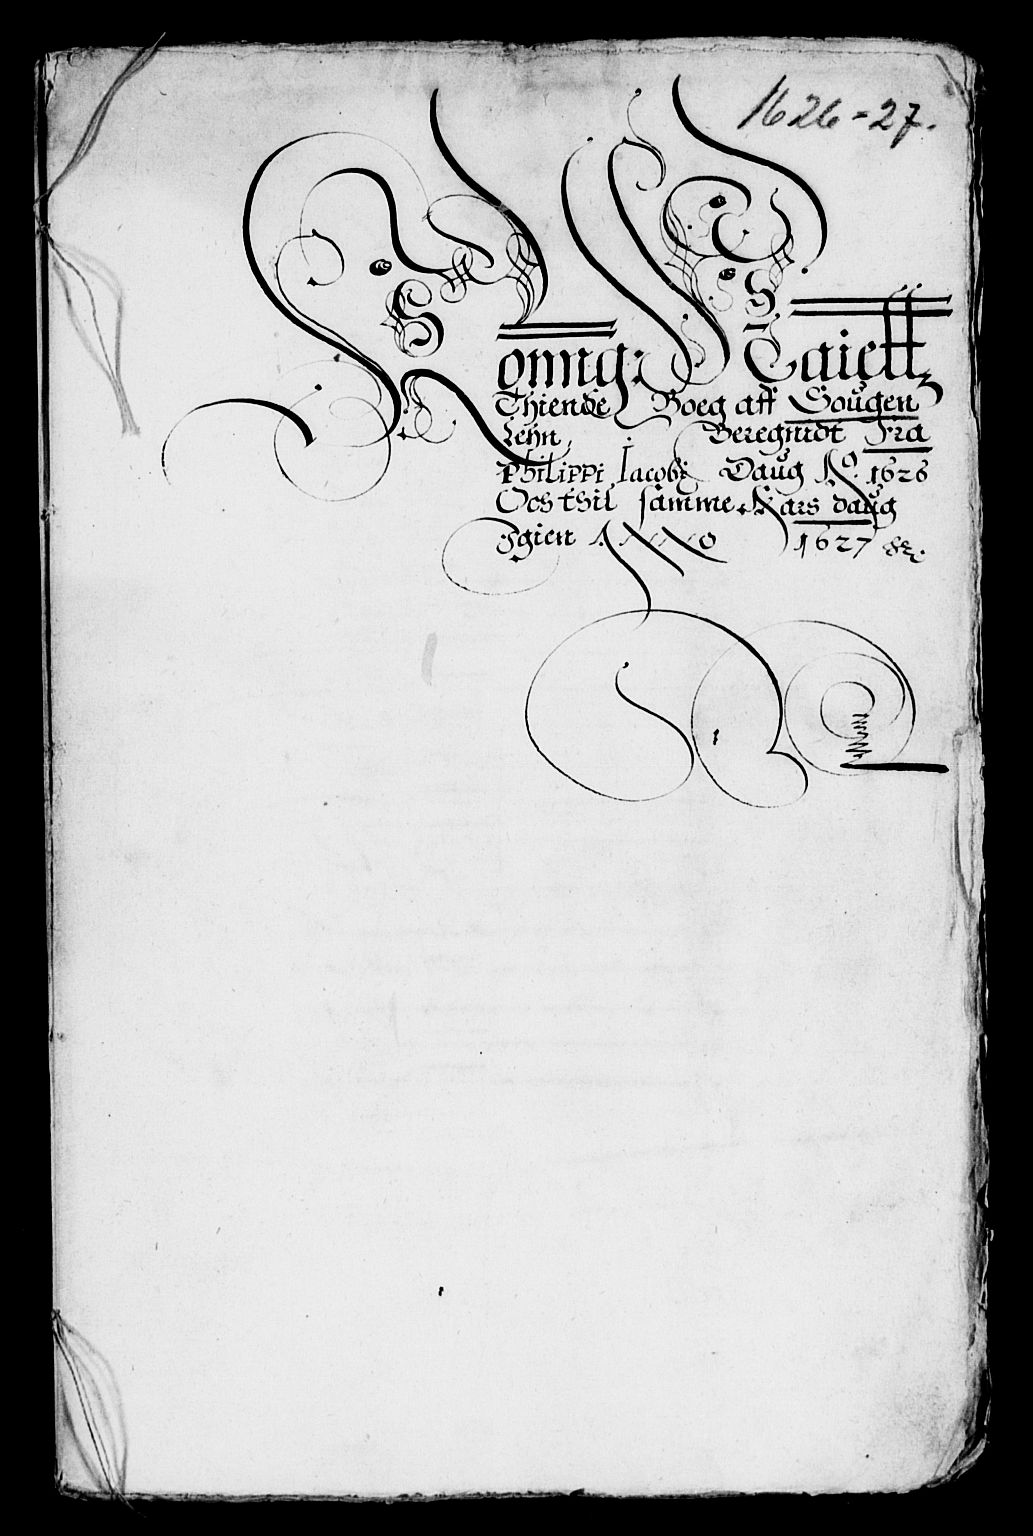 1626-27.
Konng: Maietts
Thiende Boeg aff Sougen
Lehn, Beregnidt Fra
Philippi Jacobi Daug Ao. 1626
Och thil samme Aars daug
Igien Anno 1627 &c.